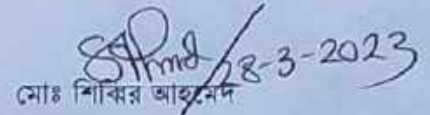 28-3-2023
মোঃ শিব্বির আহমেদ